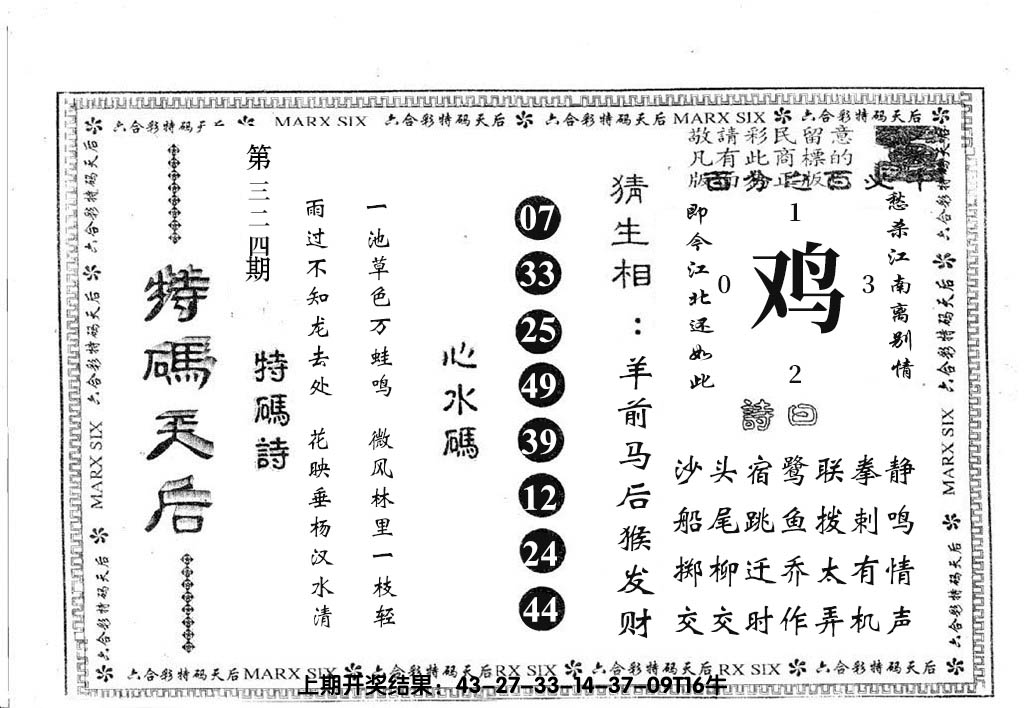 六合彩特码天后 MARX SIX 六合彩特码天后 六合彩特码天后 MARX SIX 六合彩特码天后
敬請彩民留意
凡有此商標的
版面為正版
第三二四期
特碼天后
特碼詩
雨过不知龙去处 花映垂杨汉水清
一池草色万蛙鸣 微风林里一枝轻
心水碼
07
33
25
49
39
12
24
44
猜生相：羊前马后猴发财
即今江北还如此
愁杀江南离别情
1
0
鸡
3
2
詩曰
静鸣情声
拳刺有机
联拨太弄
鹭鱼乔作
宿跳迁时
头尾柳交
沙船掷交
六合彩特码天后
MARX SIX
六合彩特码天后
六合彩特码天后
MARX SIX
六合彩特码天后
六合彩特码天后 MARX SIX 六合彩特码天后 RX SIX 六合彩特码天后 RX SIX 六合彩特码天后
上期开奖结果：43-27-33-14-37-09T16牛